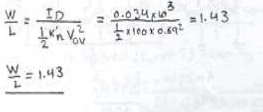 W/L = I_D / (1/2 K'_n V_OV^2) = 0.034×10^3 / (1/2 × 100 × 0.69^2) = 1.43
W/L = 1.43